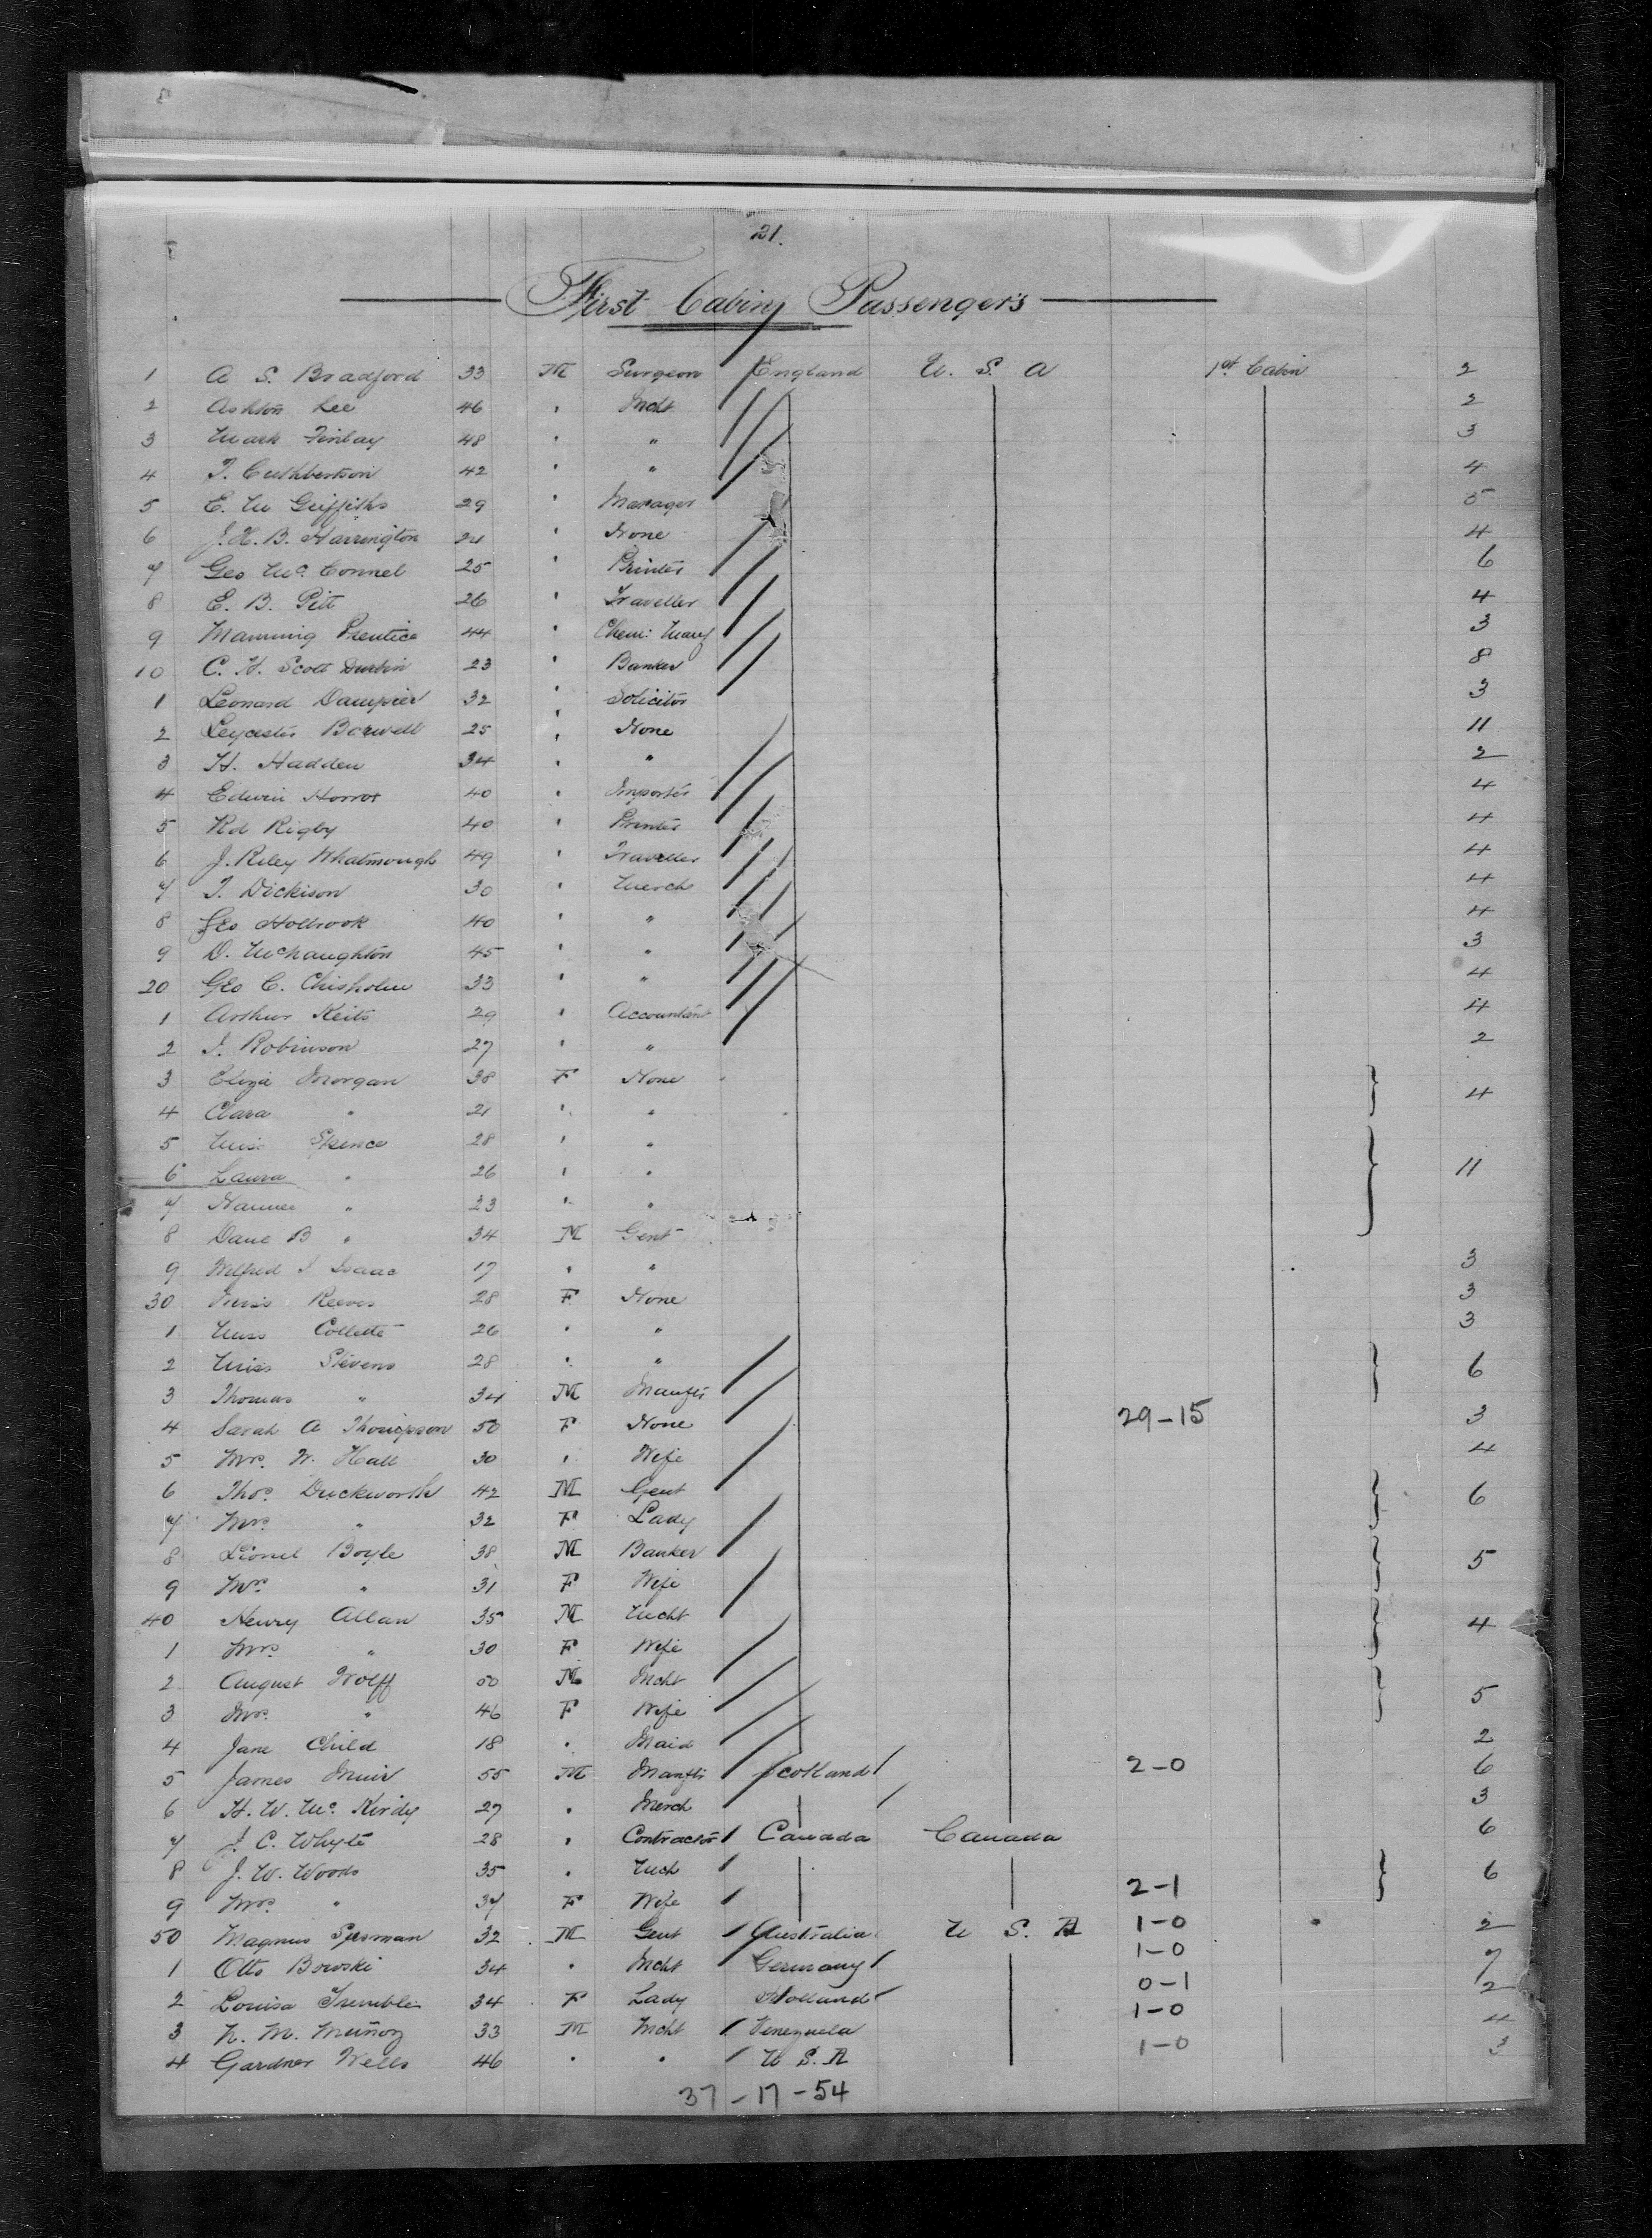 21.
First Cabin Passengers
1 A S. Bradford 33 M Surgeon England U. S. A 1st Cabin 2
2 Ashton Lee 46 " Mcht 2
3 Mark Finlay 48 " " 3
4 T. Cuthbertson 42 " " 4
5 E. W Griffiths 29 " Manager 5
6 J. H. B. Harrington 24 " None 4
7 Geo Mc Connel 25 " Printer 6
8 E. B. Pitt 26 " Traveller 4
9 Manning Prentice 44 " Chem: Manf 3
10 C. H. Scott Durbin 23 " Banker 8
1 Leonard Dampier 32 " Solicitor 3
2 Leycester Barwell 25 " None 11
3 H. Hadden 34 " " 2
4 Edwin 40 " Importer 4
5 Rd Rigby 40 " Printer 4
6 J. Riley Whatmough 49 " Traveller 4
7 T. Dickison 30 " Merch 4
8 Geo Holbrook 40 " " 4
9 D. McNaughton 45 " " 3
20 Geo C. Chisholm 33 " " 4
1 Arthur Keits 29 " Accountant 4
2 J. Robinson 27 " " 2
3 Eliza Morgan 38 F None 4
4 Clara " 21 " "
5 Miss Spence 28 " "
6 Laura " 26 " " 11
7 Nannie " 23 " "
8 Dane B " 34 M Gent
9 Wilfred I Isaac 17 " " 3
30 Miss Reeves 28 F None 3
1 Miss Collette 26 " " 3
2 Miss Stevens 28 " " 6
3 Thomas " 34 M Manftr
4 Sarah A Thompson 50 F None 29-15 3
5 Mrs. W. Hall 30 " Wife 4
6 Thos. Duckworth 42 M Gent 6
7 Mrs. " 32 F Lady
8 Lionel Boyle 38 M Banker 5
9 Mrs. " 31 F Wife
40 Henry Allan 35 M Mcht 4
1 Mrs. " 30 F Wife
2 August Wolff 50 M Mcht 5
3 Mrs. " 46 F Wife
4 Jane Child 18 " Maid 2
5 James Muir 55 M Manftr Scotland 2-0 6
6 H. W. Mc Kirdy 27 " Merch 3
7 J. C. Whyte 28 " Contractor Canada Canada 6
8 J. W. Woods 35 " Mch 6
9 Mrs. " 37 F Wife 2-1
50 Magnus 32 M Gent Australia U S. A 1-0 2
1 Otto Bowski 34 " Mcht Germany 1-0 7
2 Louisa Tremble 34 F Lady Holland 0-1 2
3 N. M. Muñoz 33 M Mcht Venezuela 1-0 4
4 Gardner Wells 46 " " U S. A 1-0 3
37-17-54